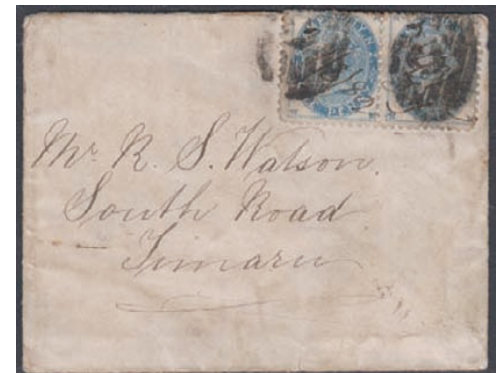 Mr. R. S. Watson.
South Road
Timaru